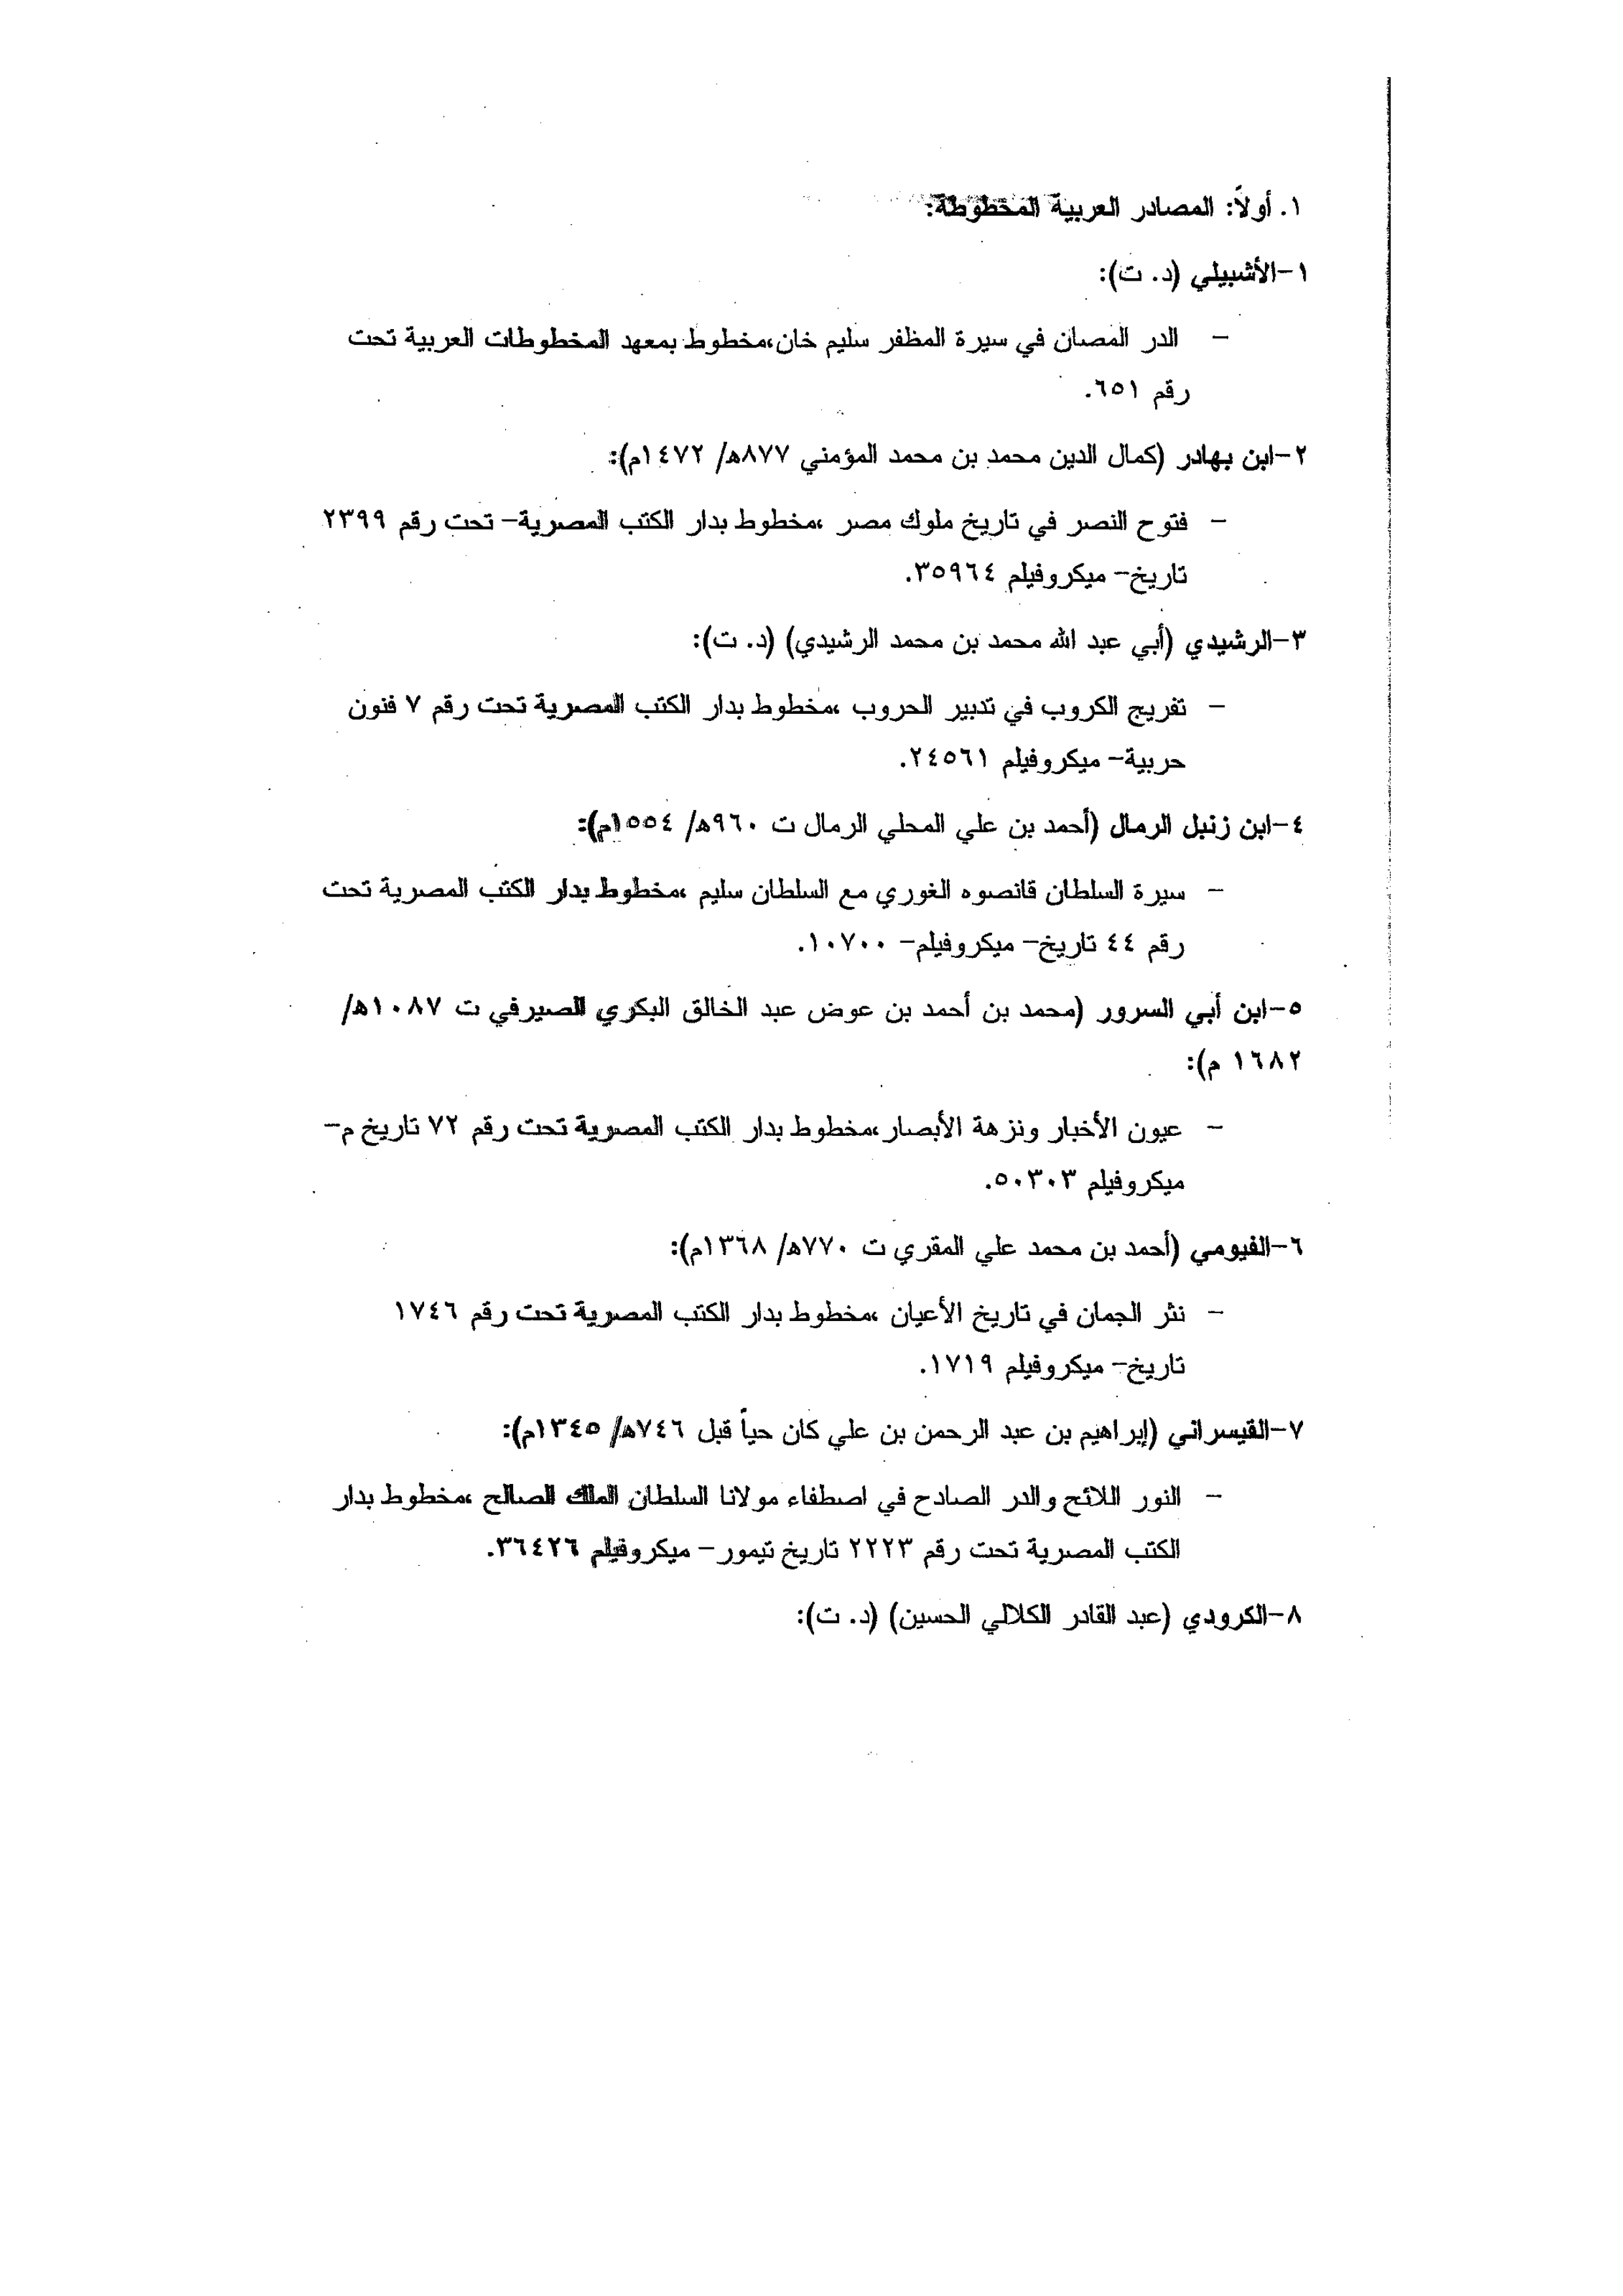 ١. أولاً: المصادر العربية المخطوطة:
١-الأشبيلي (د. ت):
- الدر المصان في سيرة المظفر سليم خان،مخطوط بمعهد المخطوطات العربية تحت
رقم ٦٥١.
٢-ابن بهادر (كمال الدين محمد بن محمد المؤمني ٨٧٧هـ/ ١٤٧٢م):
- فتوح النصر في تاريخ ملوك مصر ،مخطوط بدار الكتب المصرية- تحت رقم ٢٣٩٩
تاريخ- ميكروفيلم ٣٥٩٦٤.
٣-الرشيدي (أبي عبد الله محمد بن محمد الرشيدي) (د. ت):
- تفريج الكروب في تدبير الحروب ،مخطوط بدار الكتب المصرية تحت رقم ٧ فنون
حربية- ميكروفيلم ٢٤٥٦١.
٤-ابن زنبل الرمال (أحمد بن علي المحلي الرمال ت ٩٦٠هـ/ ١٥٥٤م):
- سيرة السلطان قانصوه الغوري مع السلطان سليم ،مخطوط بدار الكتب المصرية تحت
رقم ٤٤ تاريخ- ميكروفيلم- ١٠٧٠٠.
٥-ابن أبي السرور (محمد بن أحمد بن عوض عبد الخالق البكري الصيرفي ت ١٠٨٧هـ/
١٦٨٢ م):
- عيون الأخبار ونزهة الأبصار،مخطوط بدار الكتب المصرية تحت رقم ٧٢ تاريخ م-
ميكروفيلم ٥٠٣٠٣.
٦-الفيومي (أحمد بن محمد علي المقري ت ٧٧٠هـ/ ١٣٦٨م):
- نثر الجمان في تاريخ الأعيان ،مخطوط بدار الكتب المصرية تحت رقم ١٧٤٦
تاريخ- ميكروفيلم ١٧١٩.
٧-القيسراني (إبراهيم بن عبد الرحمن بن علي كان حياً قبل ٧٤٦هـ/ ١٣٤٥م):
- النور اللائح والدر الصادح في اصطفاء مولانا السلطان الملك الصالح ،مخطوط بدار
الكتب المصرية تحت رقم ٢٢٢٣ تاريخ تيمور- ميكروفيلم ٣٦٤٢٦.
٨-الكرودي (عبد القادر الكلالي الحسين) (د. ت):